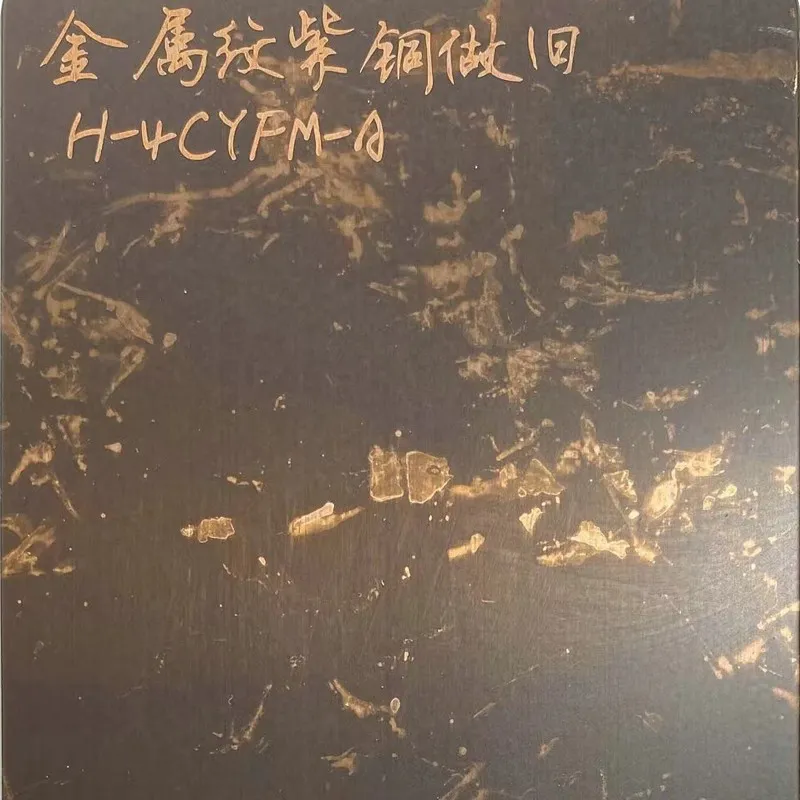 金属纹紫铜做旧
H-4CYFM-A